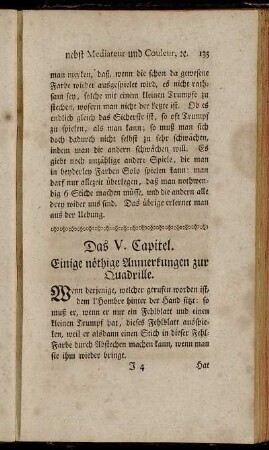 nebst Mediateur und Couleur, ꝛc. 135
man merken, daß, wenn die schon da gewesene
Farbe wieder ausgespielet wird, es nicht rath-
sam sey, solche mit einem kleinen Trumpfe zu
stechen, wofern man nicht der letzte ist. Ob es
endlich gleich das Sicherste ist, so oft Trumpf
zu spielen, als man kann; so muß man sich
doch dadurch nicht selbst zu sehr schwächen,
indem man die andern schwächen will. Es
giebt noch unzählige andere Spiele, die man
in beyderley Farben Solo spielen kann: man
darf nur allezeit überlegen, daß man nothwen-
dig 6 Stiche machen müsse, und die andern alle
drey wider uns sind. Das übrige erlernet man
aus der Uebung.
Das V. Capitel.
Einige nöthige Anmerkungen zur
Quadrille.
Wenn derjenige, welcher gerufen worden ist,
dem l'Hombre hinter der Hand sitzt: so
muß er, wenn er nur ein Fehlblatt und einen
kleinen Trumpf hat, dieses Fehlblatt ausspie-
len, weil er alsdann einen Stich in dieser Fehl-
Farbe durch Abstechen machen kann, wenn man
sie ihm wieder bringt.
J 4 Hat